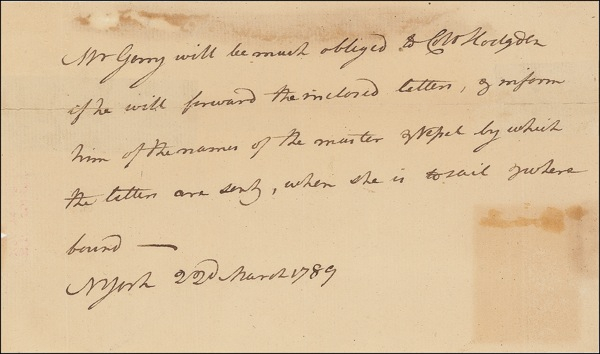 Mr Gerry will be much obliged to Colo Hodgden
if he will forward the inclosed letters, & inform
him of the names of the master & Vessel by which
the letters are sent, when she is to sail & where
bound —
N York 22d March 1789